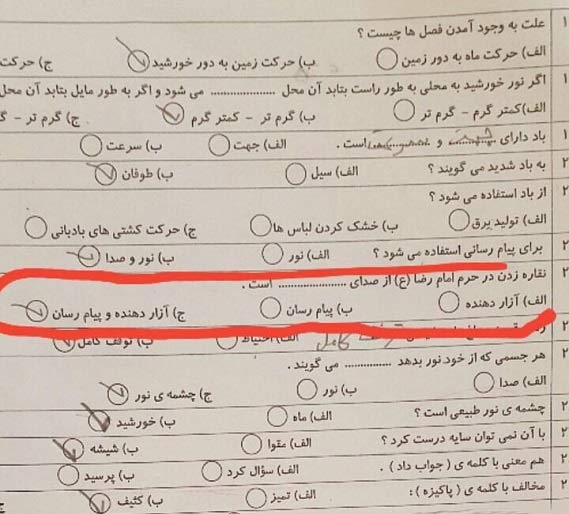 ۱ علت به وجود آمدن فصل ها چیست ؟
الف) حرکت ماه به دور زمین ب) حرکت زمین به دور خورشید ج) حرکت
اگر نور خورشید به محلی به طور راست بتابد آن محل .................... می شود و اگر به طور مایل بتابد آن محل
الف)کمتر گرم - گرم تر ب) گرم تر - کمتر گرم ج) گرم تر - گ
۱ باد دارای و است . الف) جهت ب) سرعت
۲ به باد شدید می گویند ؟ الف) سیل ب) طوفان
۲ از باد استفاده می شود ؟
الف) تولید برق ب) خشک کردن لباس ها ج) حرکت کشتی های بادبانی
۲ برای پیام رسانی استفاده می شود ؟ الف) نور ب) نور و صدا
۲ نقاره زدن در حرم امام رضا (ع) از صدای .................... است .
الف) آزار دهنده ب) پیام رسان ج) آزار دهنده و پیام رسان
۲ کامل الف) احتیاط ب) توقف کامل
۲ هر جسمی که از خود نور بدهد .............. می گویند .
الف) صدا ب) نور ج) چشمه ی نور
۲ چشمه ی نور طبیعی است ؟ الف) ماه ب) خورشید
۲ با آن نمی توان سایه درست کرد ؟ الف) مقوا ب) شیشه
۲ هم معنی با کلمه ی ( جواب داد ) . الف) سؤال کرد ب) پرسید
۲ مخالف با کلمه ی ( پاکیزه ) : الف) تمیز ب) کثیف ج